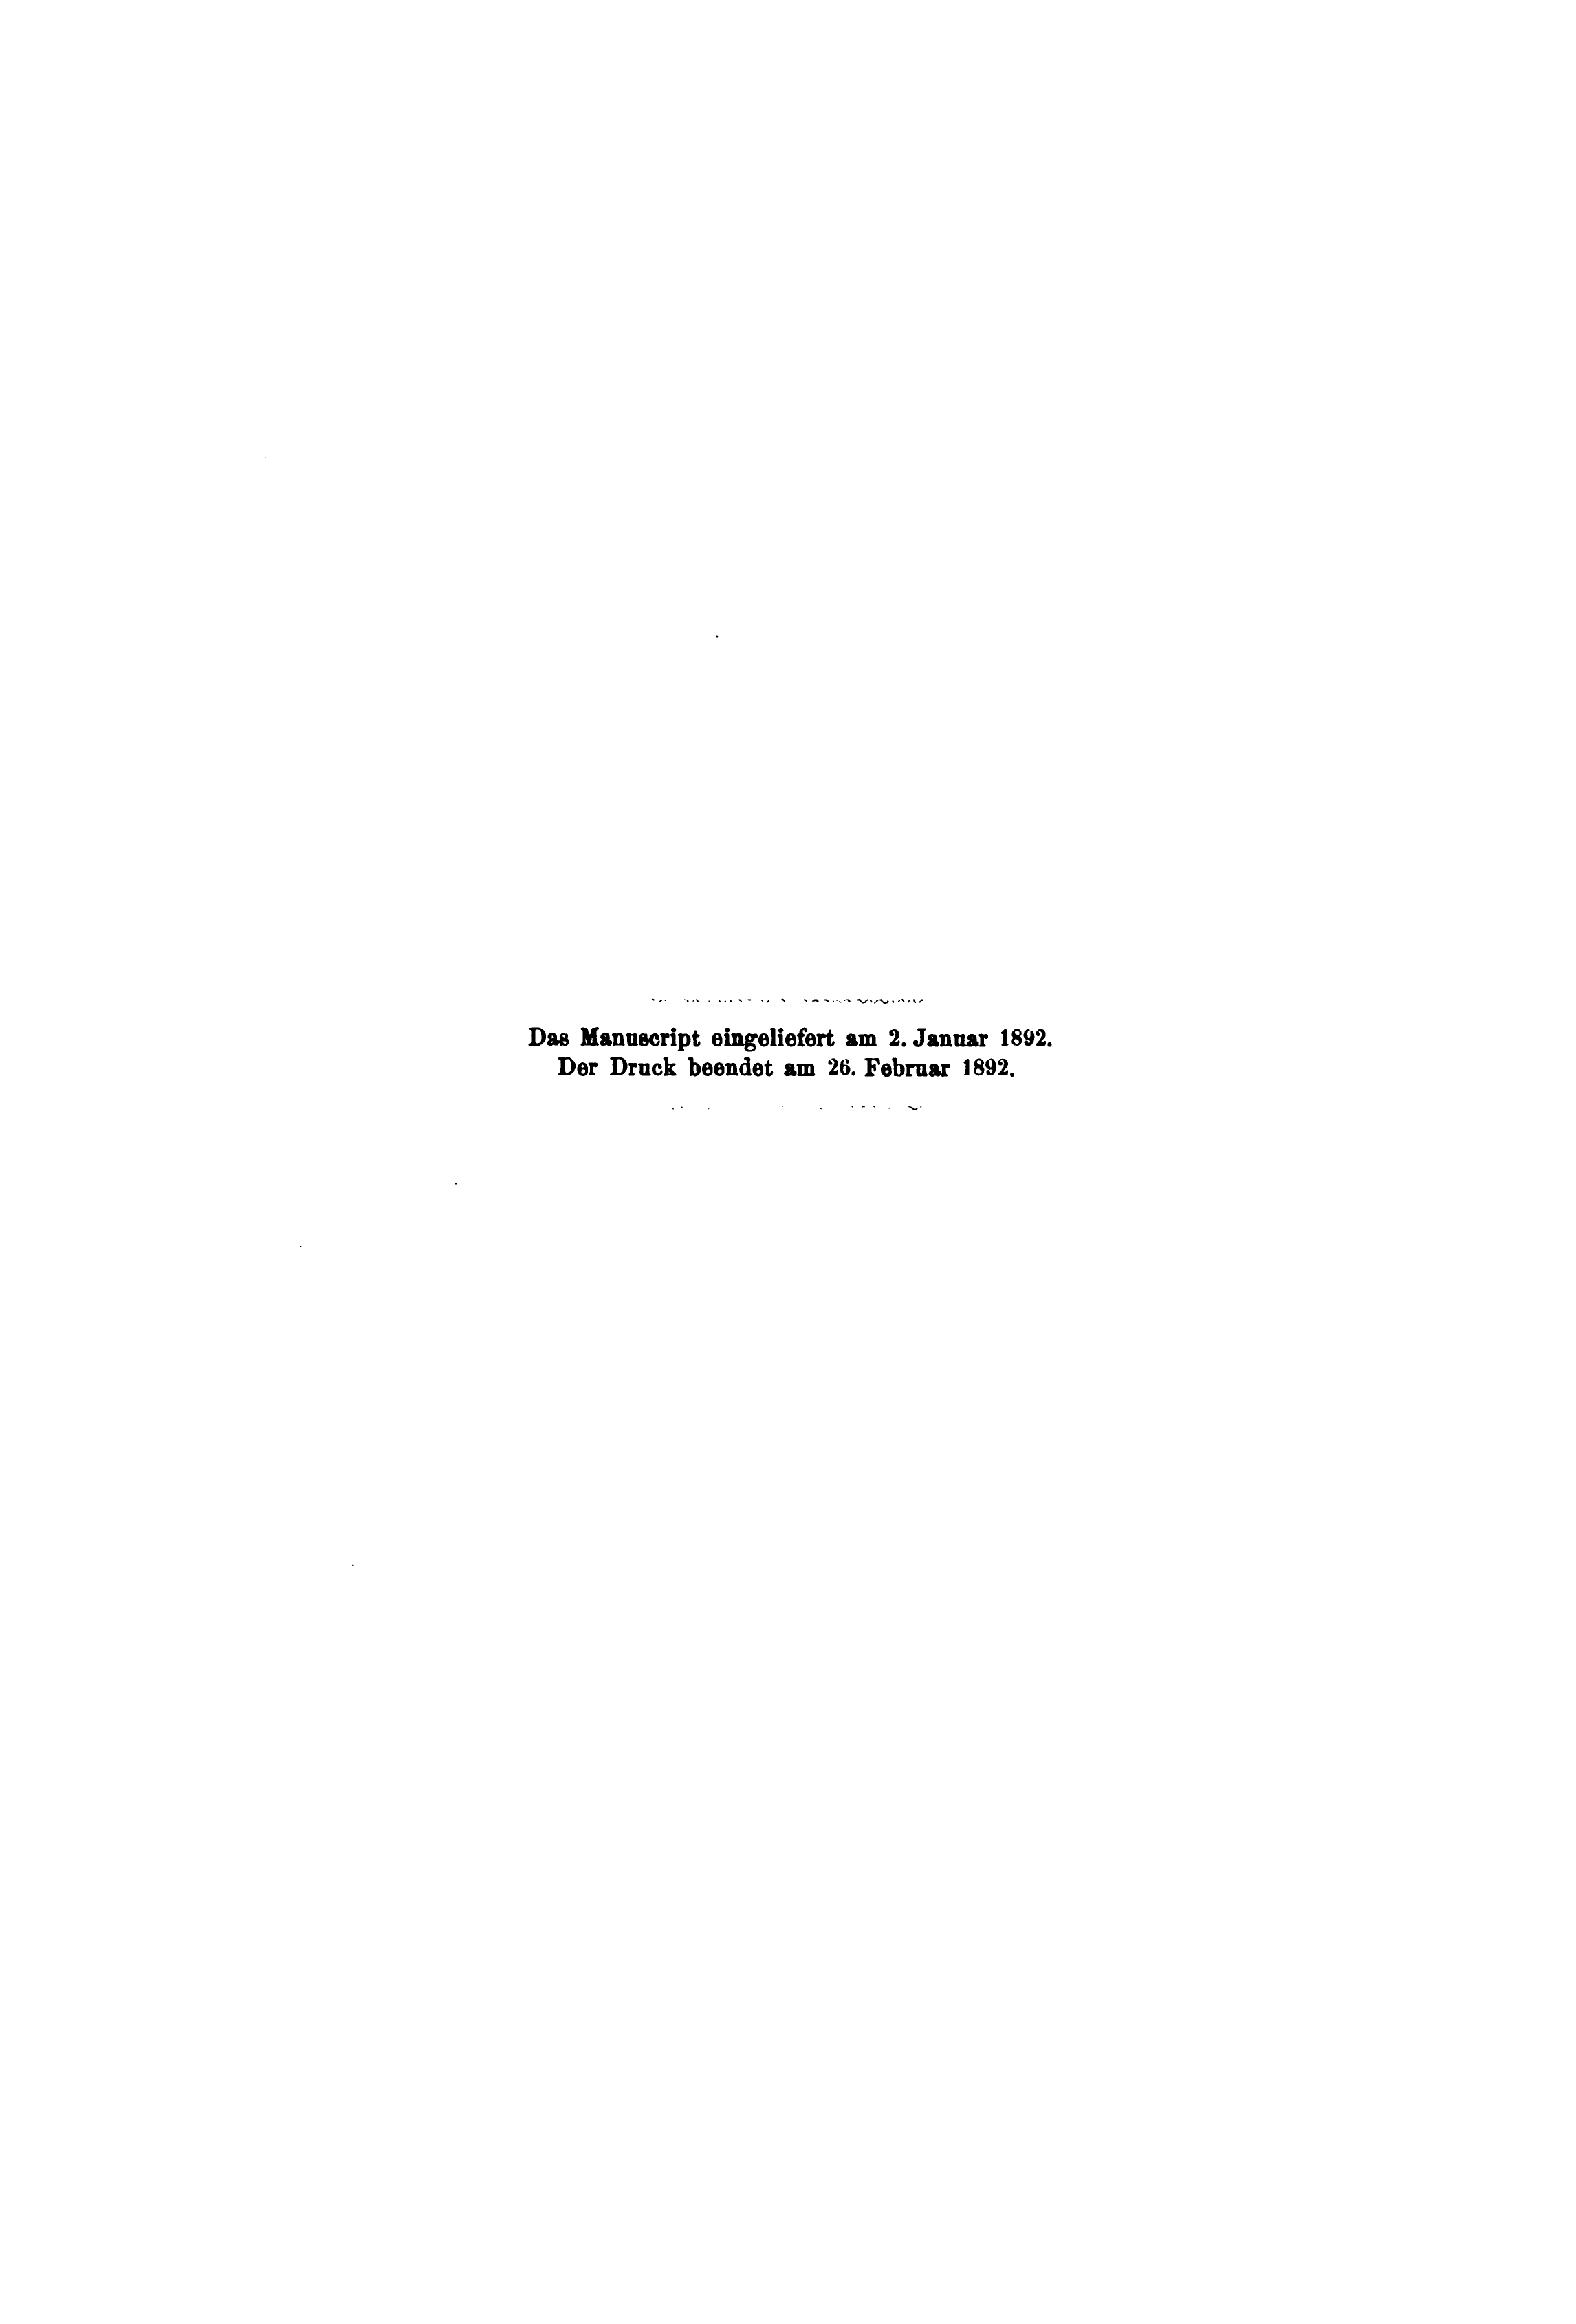 Das Manuscript eingeliefert am 2. Januar 1892.
Der Druck beendet am 26. Februar 1892.